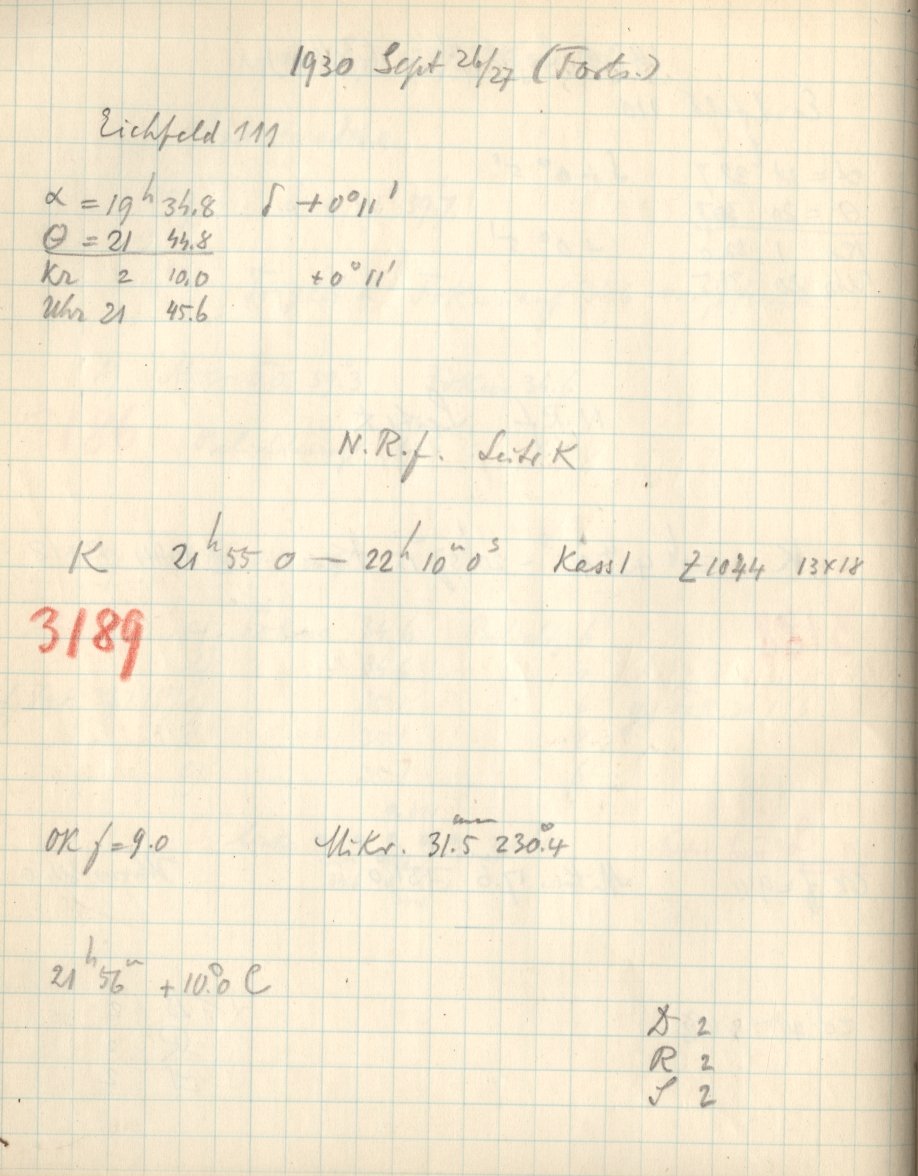 1930 Sept 26/27 (Forts.)
Eichfeld 111
α = 19ʰ 34.8 δ +0°11'
θ = 21 44.8
Kr 2 10.0 +0°11'
Uhr 21 45.6
N.R.f. Seite K
K 21ʰ 55 0 — 22ʰ 10ᵐ 0ˢ Kass 1 Z1044 13×18
3189
OK f = 9.0 Mikr. 31.5ᵐᵐ 230.°4
21ʰ 56ᵐ +10.°0 C
D 2
R 2
S 2